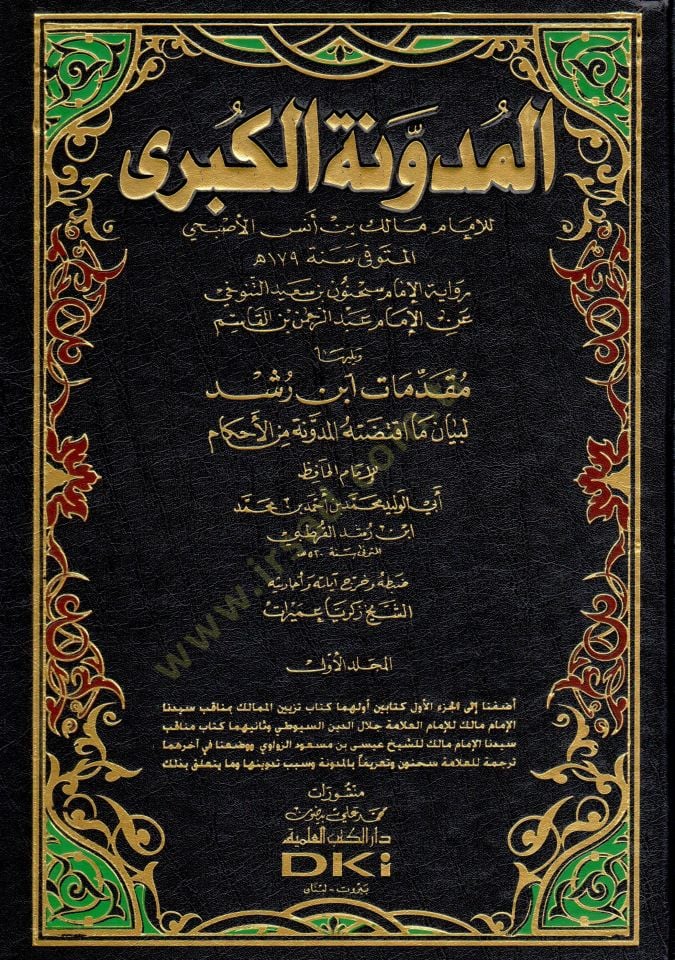 المُدوَّنة الكُبرى
للإمام مالك بن أنس الأصبحي
المتوفى سنة ١٧٩هـ
رواية الإمام سحنون بن سعيد التنوخي
عن الإمام عبد الرحمن بن القاسم
ويليها
مُقدّمات ابن رُشد
لبيان ما اقتضته المدونة من الأحكام
للإمام الحافظ
أبي الوليد محمد بن أحمد بن محمد
ابن رشد القرطبي
المتوفى سنة ٥٢٠هـ
ضبطه وخرج آياته وأحاديثه
الشيخ زكريا عميرات
المجلد الأول
أضفنا إلى الجزء الأول كتابين أولهما كتاب تزيين الممالك بمناقب سيدنا
الإمام مالك للإمام العلامة جلال الدين السيوطي وثانيهما كتاب مناقب
سيدنا الإمام مالك للشيخ عيسى بن مسعود الزواوي ووضعنا في آخرهما
ترجمة للعلامة سحنون وتعريفاً بالمدونة وسبب تدوينها وما يتعلق بذلك
منشورات
محمد علي بيضون
دار الكتب العلمية
DKi
بيروت - لبنان